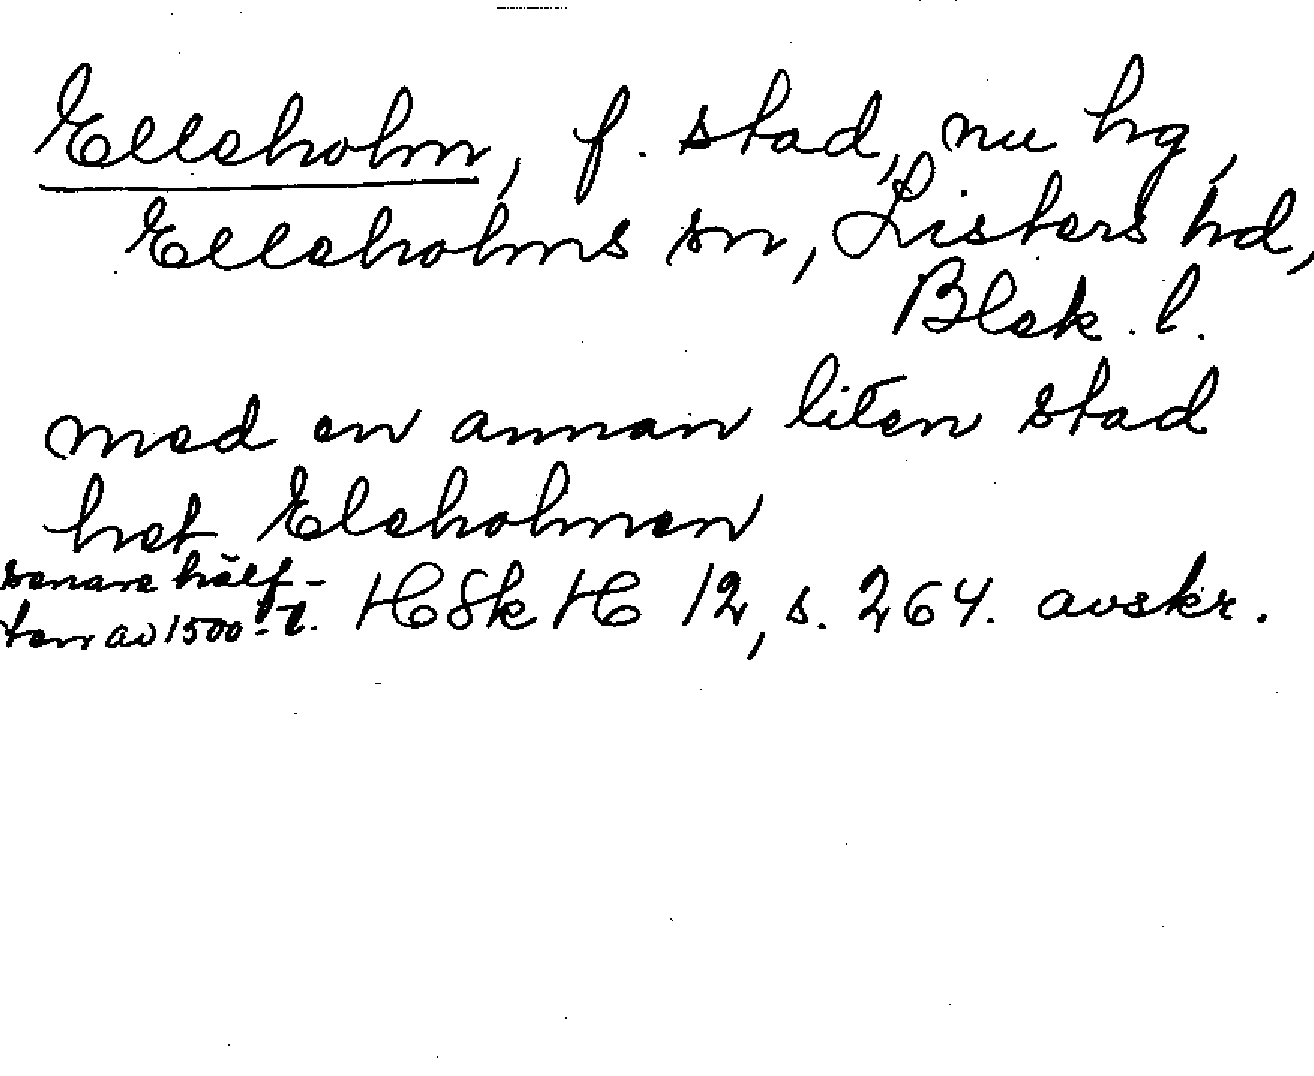 Elleholm, f. stad, nu hg,
Elleholms sn, Listers hd,
Blek. l.
med en annan liten stad
het Eleholmen
senare hälf-
ten av 1500-t. HSkH 12, s. 264. avskr.